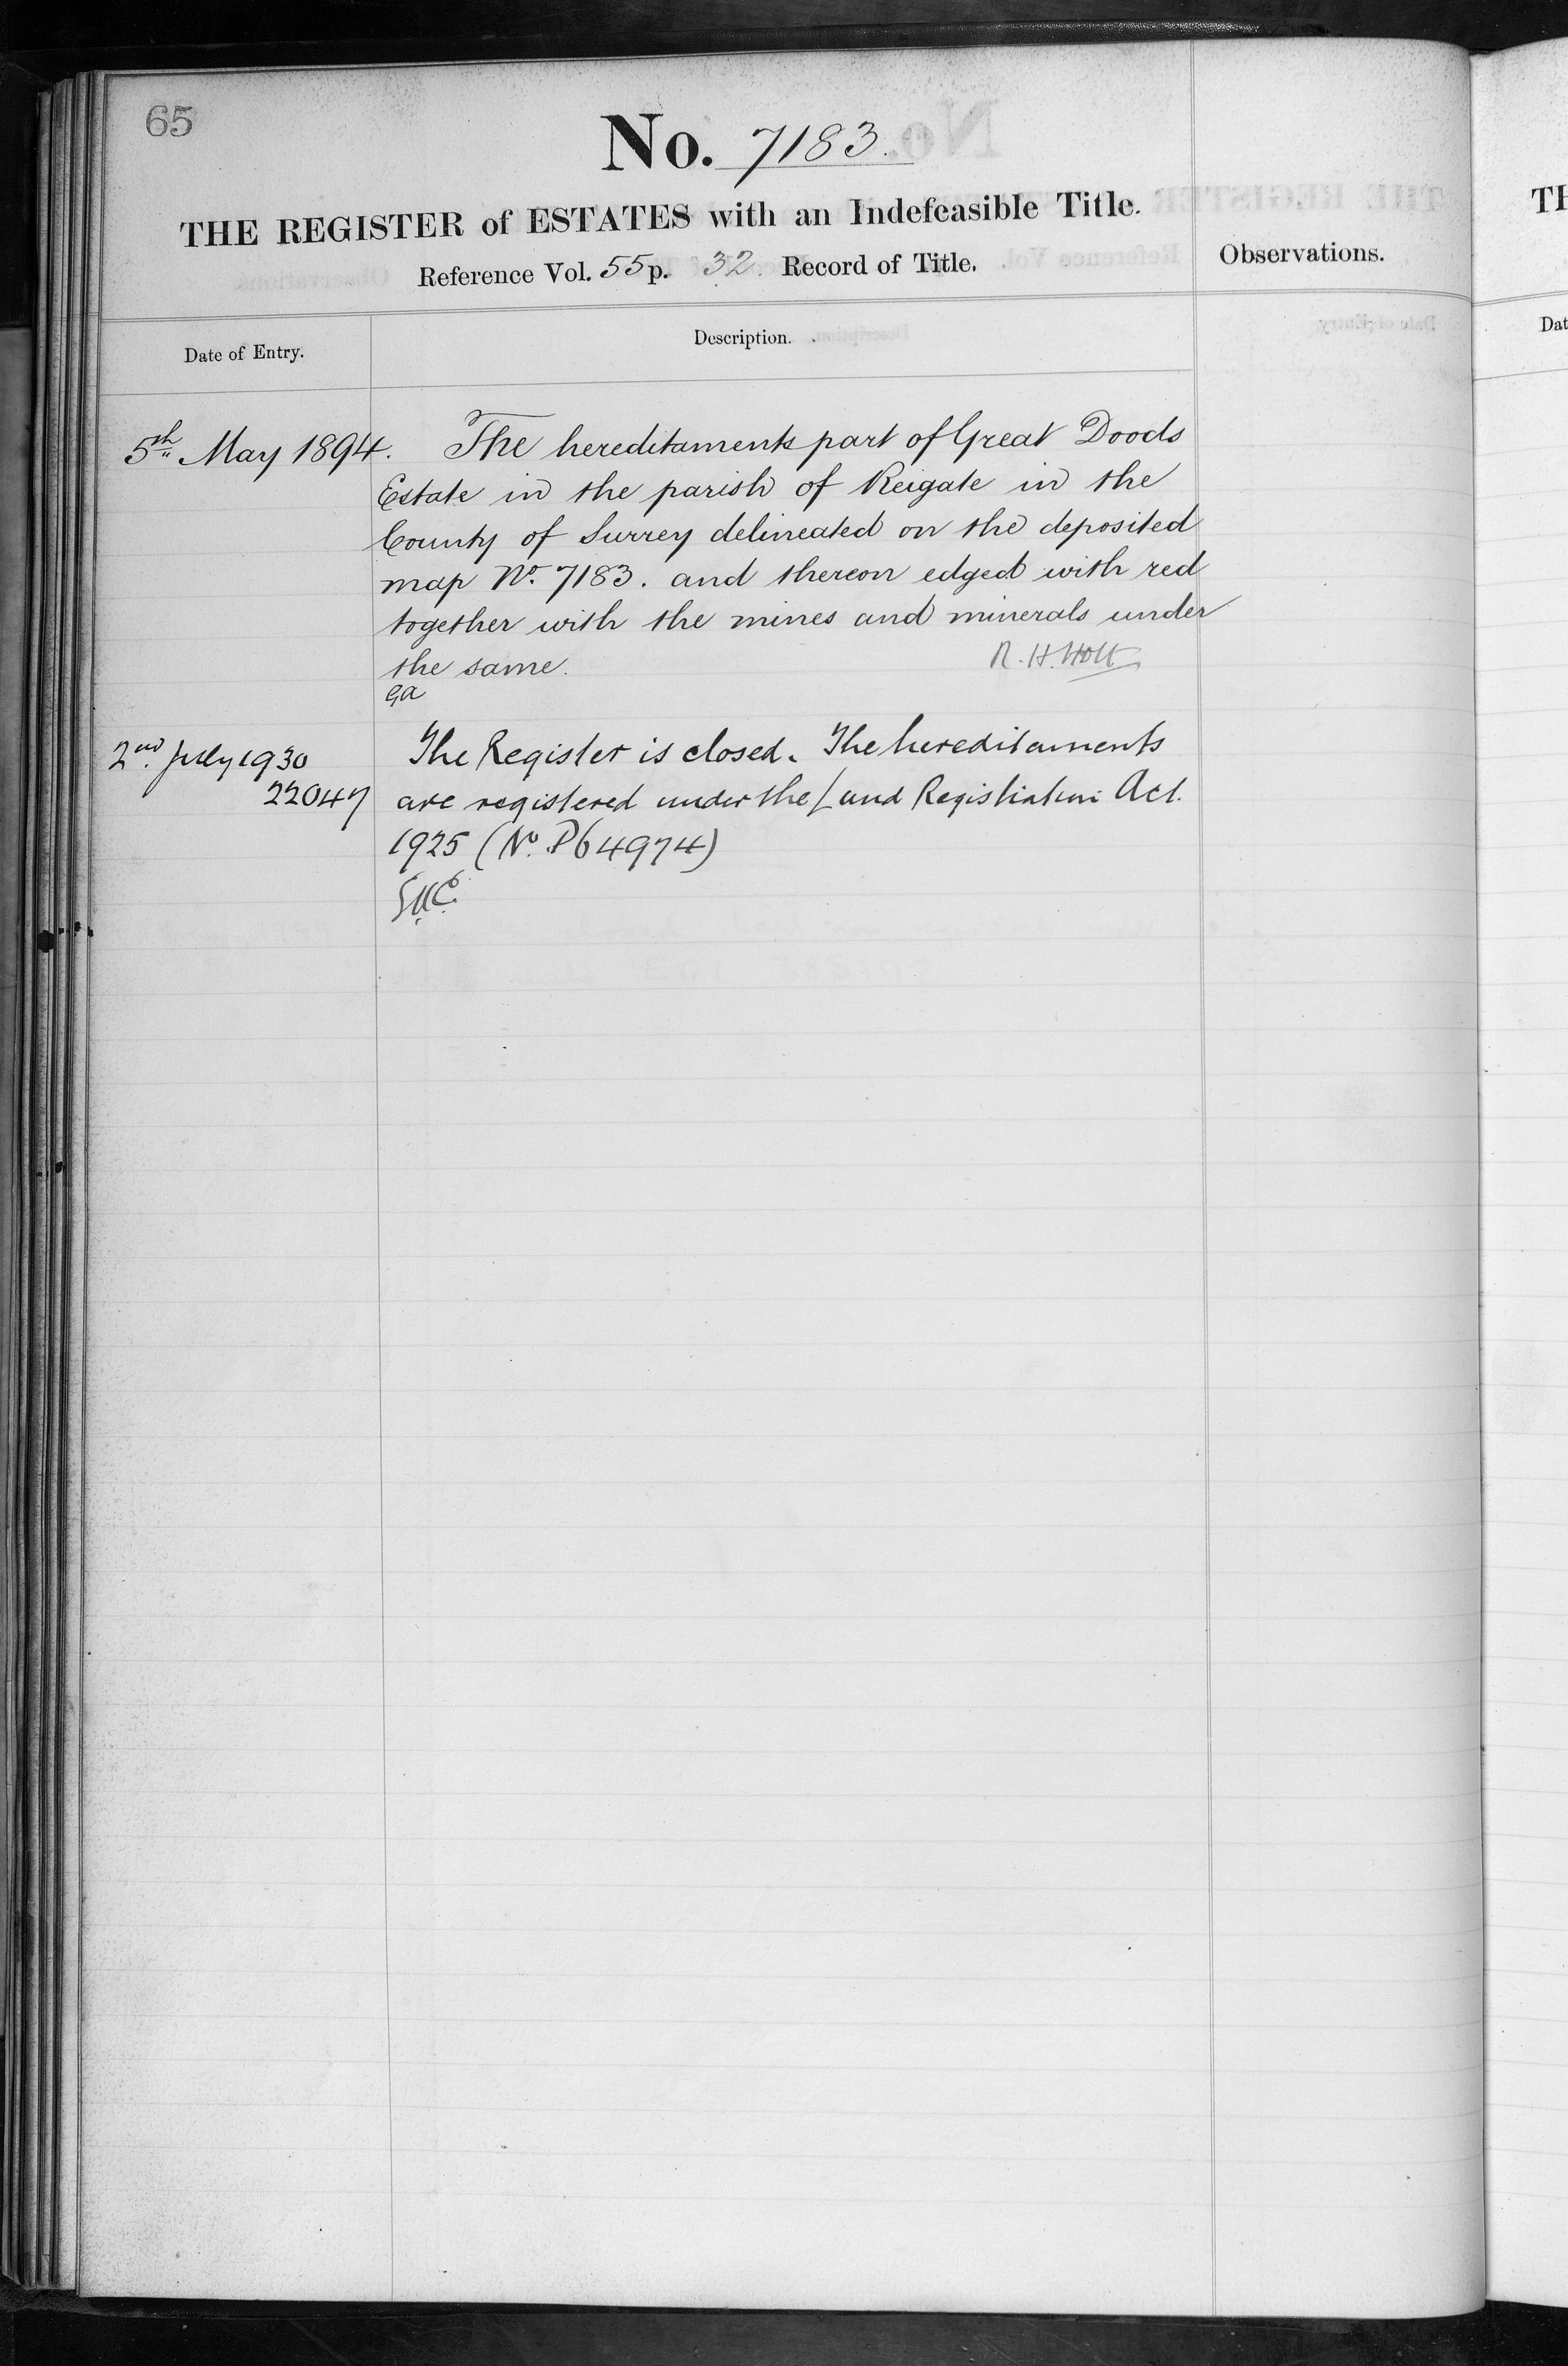 65
No. 7183.
THE REGISTER of ESTATES with an Indefeasible Title.
Reference Vol. 55 p. 32. Record of Title.
Observations.
Date of Entry.
Description.
5th May 1894.
The hereditaments part of Great Doods
Estate in the parish of Reigate in the
County of Surrey delineated on the deposited
map No. 7183. and thereon edged with red
together with the mines and minerals under
the same.
R. H. Holt
2nd. July 1930
22047
The Register is closed. The hereditaments
are registered under the Land Registration Act.
1925 (No. P64974)
TH
Dat